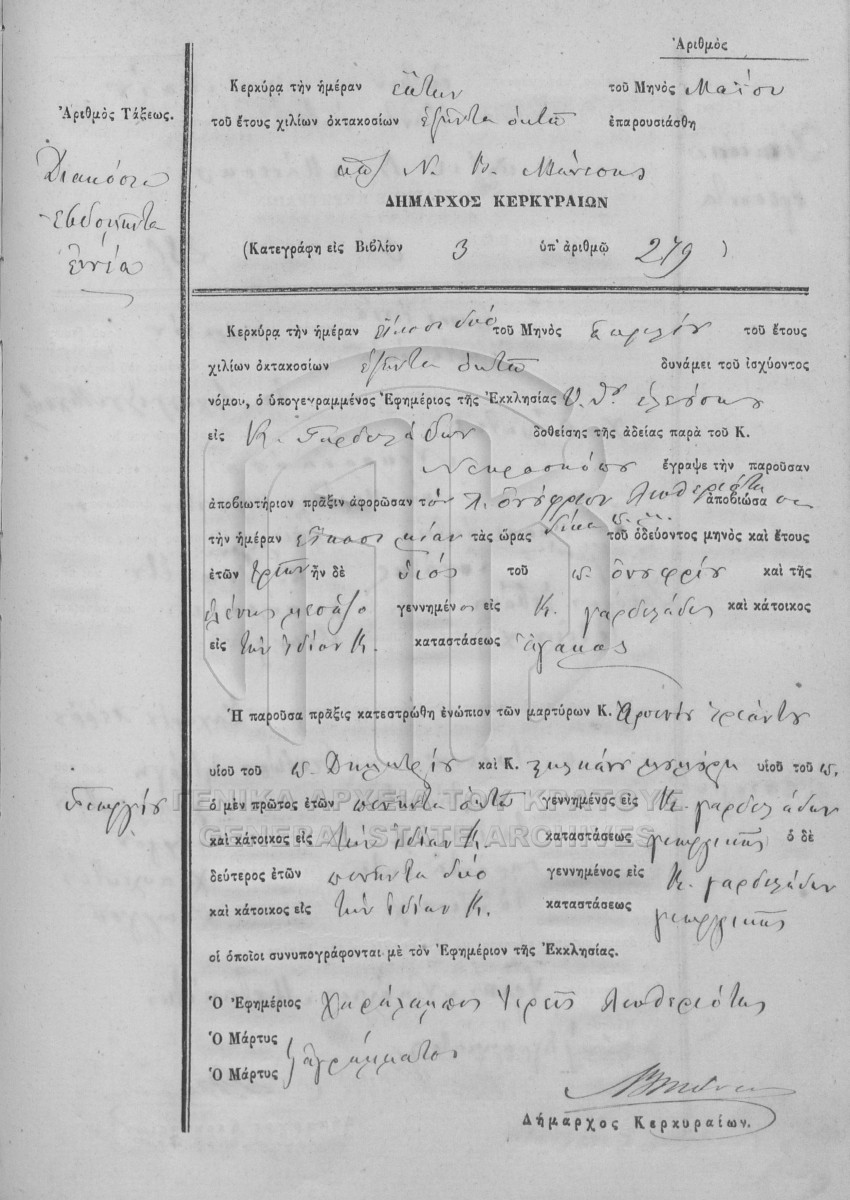 Ἀριθμὸς
Κερκύρᾳ τὴν ἡμέραν ἕκτην τοῦ Μηνὸς Μαΐου
Ἀριθμὸς Τάξεως.
τοῦ ἔτους χιλίων ὀκτακοσίων ἑξῆντα ὀκτὼ ἐπαρουσιάσθη
Διακόσια
Ν. Β. Μάνεσης
ἑβδομῆντα
ΔΗΜΑΡΧΟΣ ΚΕΡΚΥΡΑΙΩΝ
ἐννέα
(Κατεγράφη εἰς Βιβλίον 3 ὑπ' ἀριθμῷ 279 )
Κερκύρᾳ τὴν ἡμέραν εἴκοσι δύο τοῦ Μηνὸς Ἀπριλίου τοῦ ἔτους
χιλίων ὀκτακοσίων ἑξῆντα ὀκτὼ δυνάμει τοῦ ἰσχύοντος
νόμου, ὁ ὑπογεγραμμένος Ἐφημέριος τῆς Ἐκκλησίας Υ. Θ. ἐλεούσης
εἰς Κ. Γαρδελάδων δοθείσης τῆς ἀδείας παρὰ τοῦ Κ.
Νεκροσκόπου ἔγραψε τὴν παροῦσαν
ἀποβιωτήριον πρᾶξιν ἀφορῶσαν τὸν Ὀνούφριον Λευθεριώτη ἀποβιώσα
τὴν ἡμέραν εἴκοσι μίαν τὰς ὥρας δέκα τοῦ ὁδεύοντος μηνὸς καὶ ἔτους
ἐτῶν τριῶν ἦν δὲ υἱὸς τοῦ Ὀνουφρίου καὶ τῆς
ἑλένης γεννημένος εἰς Κ. γαρδελάδες καὶ κάτοικος
εἰς τὴν ἰδίαν Κ. καταστάσεως ἄγαμος
Ἡ παροῦσα πρᾶξις κατεστρώθη ἐνώπιον τῶν μαρτύρων Κ.
υἱοῦ τοῦ Δημητρίου καὶ Κ. υἱοῦ τοῦ
Γεωργίου
ΓΕΝΙΚΑ ΑΡΧΕΙΑ ΤΟΥ ΚΡΑΤΟΥΣ
ὁ μὲν πρῶτος ἐτῶν πενῆντα ὀκτὼ γεννημένος εἰς Κ. γαρδελάδων
GENERAL STATE ARCHIVES
καὶ κάτοικος εἰς τὴν ἰδίαν Κ. καταστάσεως γεωργικῆς ὁ δὲ
δεύτερος ἐτῶν πενῆντα δύο γεννημένος εἰς Κ. γαρδελάδων
καὶ κάτοικος εἰς τὴν ἰδίαν Κ. καταστάσεως γεωργικῆς
οἱ ὁποῖοι συνυπογράφονται μὲ τὸν Ἐφημέριον τῆς Ἐκκλησίας.
Ὁ Ἐφημέριος Χαράλαμπος Ἱερεὺς Λευθεριώτης
Ὁ Μάρτυς
ἀγράμματοι
Ὁ Μάρτυς
Δήμαρχος Κερκυραίων.